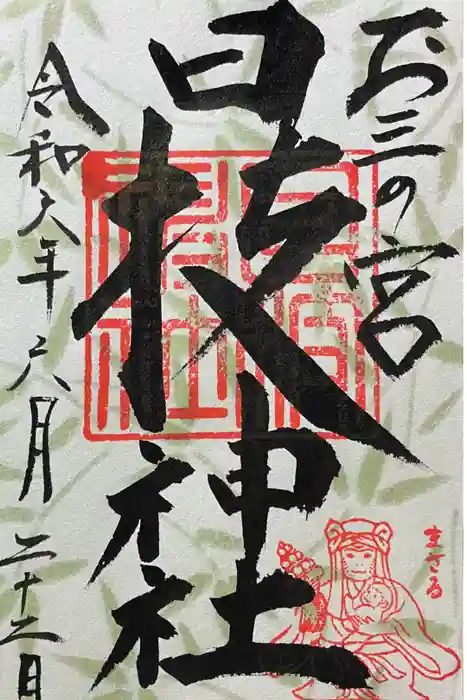 お三の宮
日枝神社
令和六年 六月 二十二日
まさる